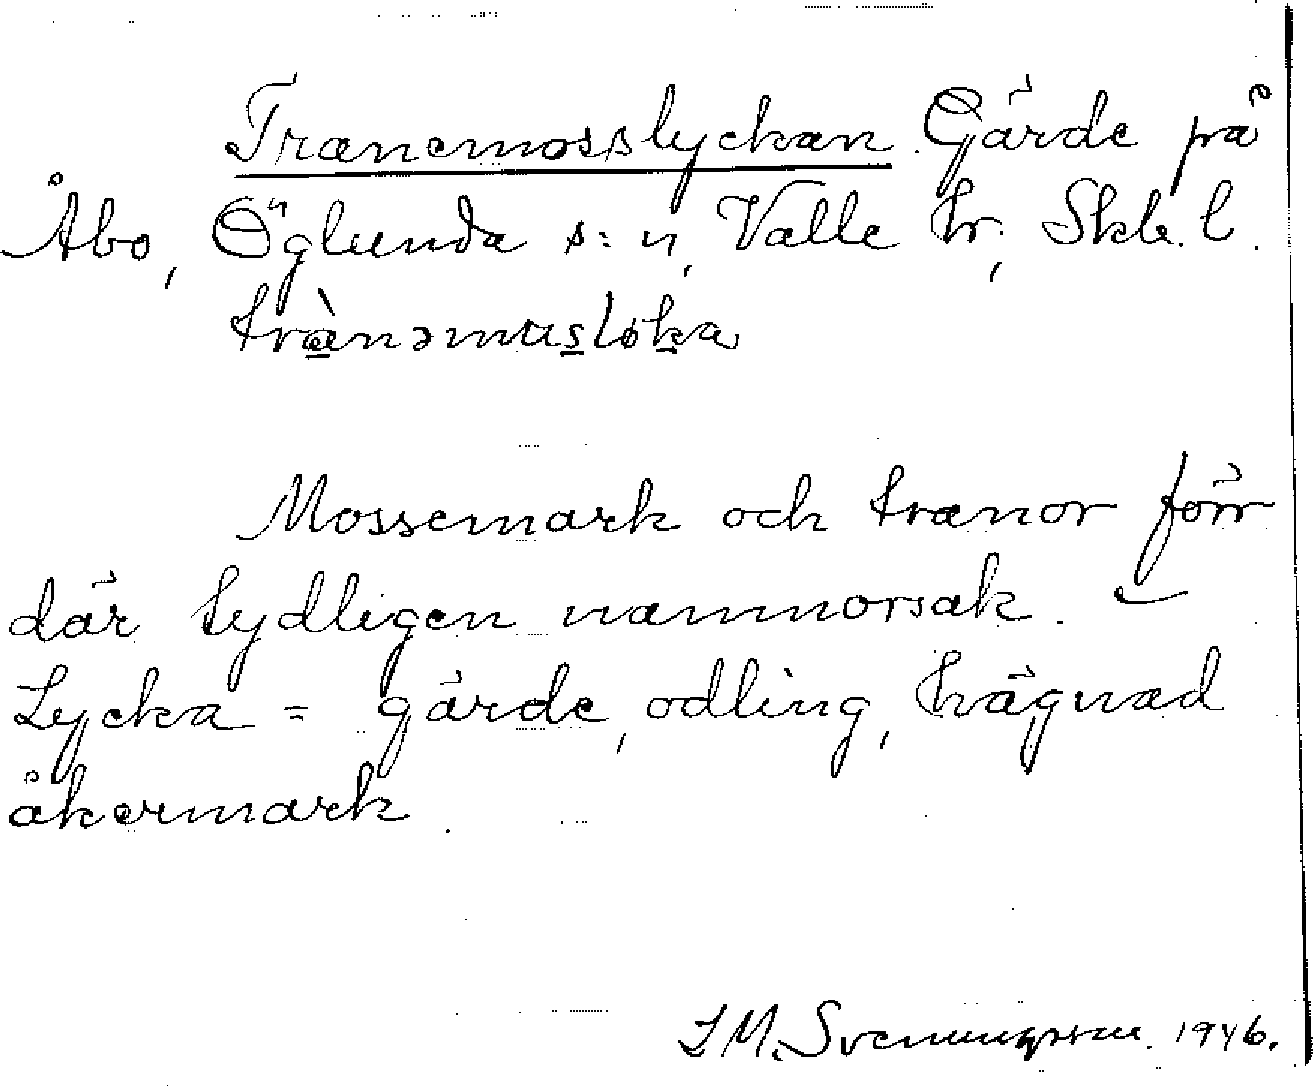 Tranemosslyckan. Gärde på
Åbo, Öglunda s:n, Valle hr, Skb. l.
trànɔmusløka
Mossemark och tranor förr
där tydligen namnorsak. –
Lycka = gärde, odling, hägnad
åkermark.
S M. Svenungsson. 1946.